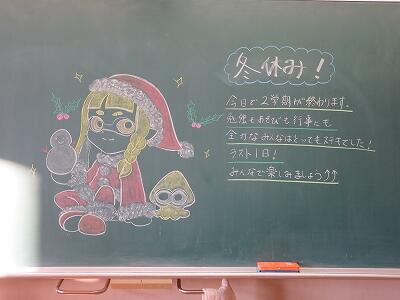 冬休み！
今日で2学期が終わります。
勉強もあそびも行事にも
全力なみんなはとってもステキでした！
ラスト1日！
みんなで楽しみましょう↑↑